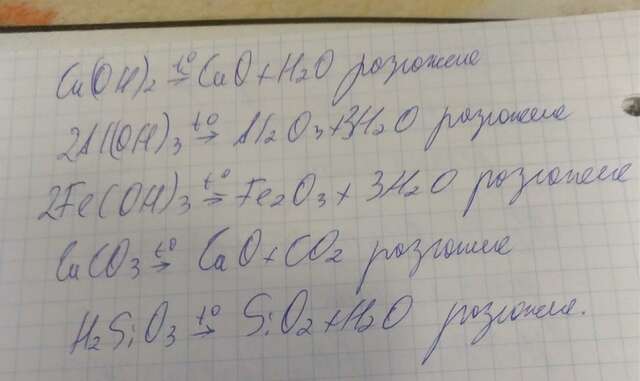 Ca(OH)2 t°→ CaO+H2O разложе
2Al(OH)3 t°→ Al2O3+3H2O разложе
2Fe(OH)3 t°→ Fe2O3+3H2O разложе
CaCO3 t°→ CaO+CO2 разложе
H2SiO3 t°→ SiO2+H2O разложе.